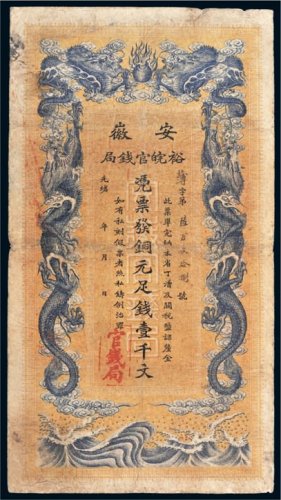 安徽
裕皖官錢局
字第 號
此票準完納本省丁漕及關稅鹽課釐金
憑票發銅元足錢壹千文
如有私刻假票者照私鑄例治罪
光緒 年 月 日
官錢局